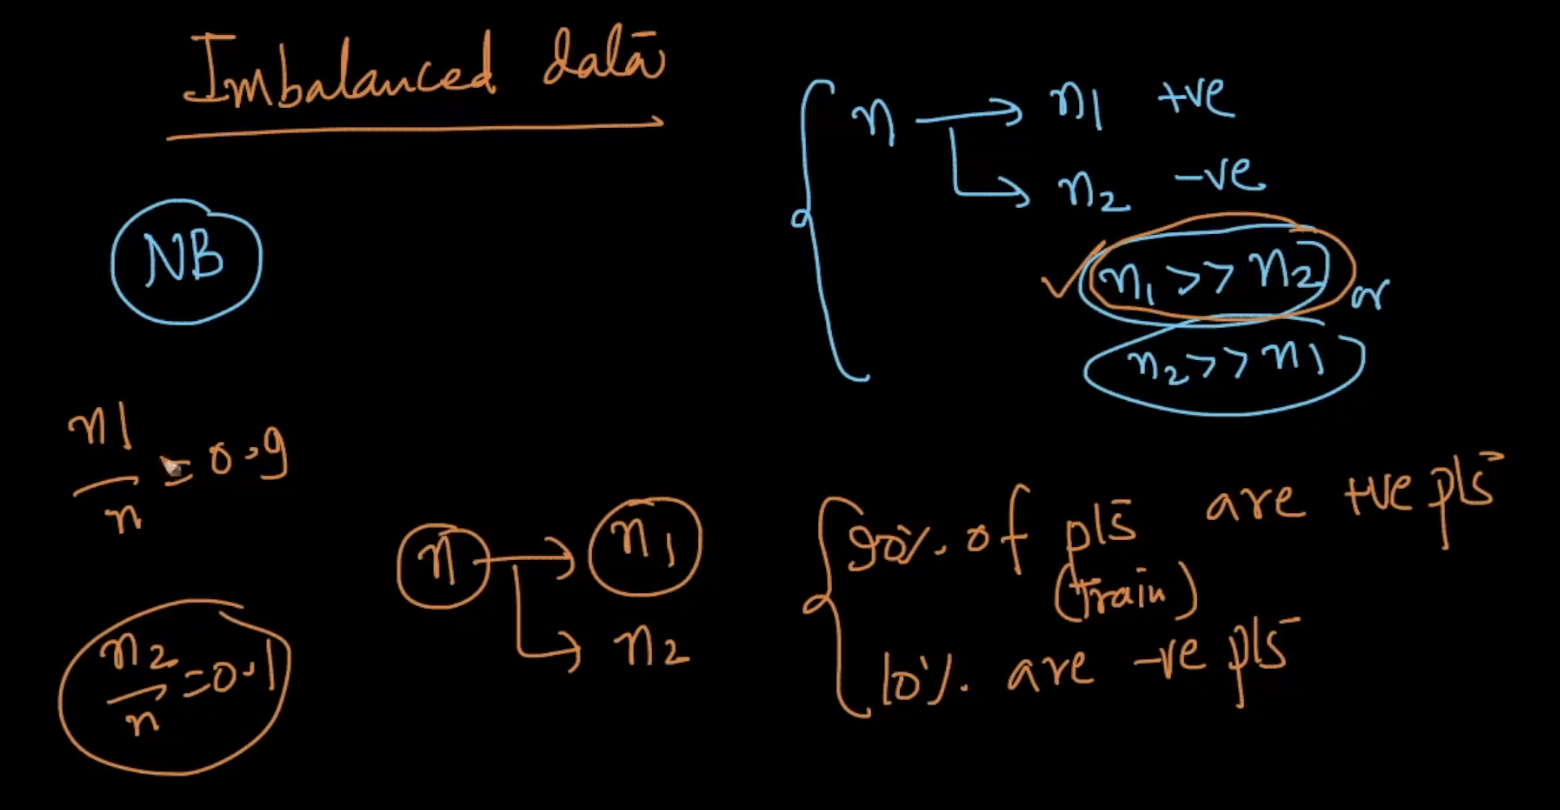 Imbalanced data
NB
n → n1 +ve
↳ n2 -ve
✓ n1 >> n2 or
n2 >> n1
n1/n = 0.9
n2/n = 0.1
n → n1
↳ n2
90% of pts are +ve pts
(train)
10% are -ve pts